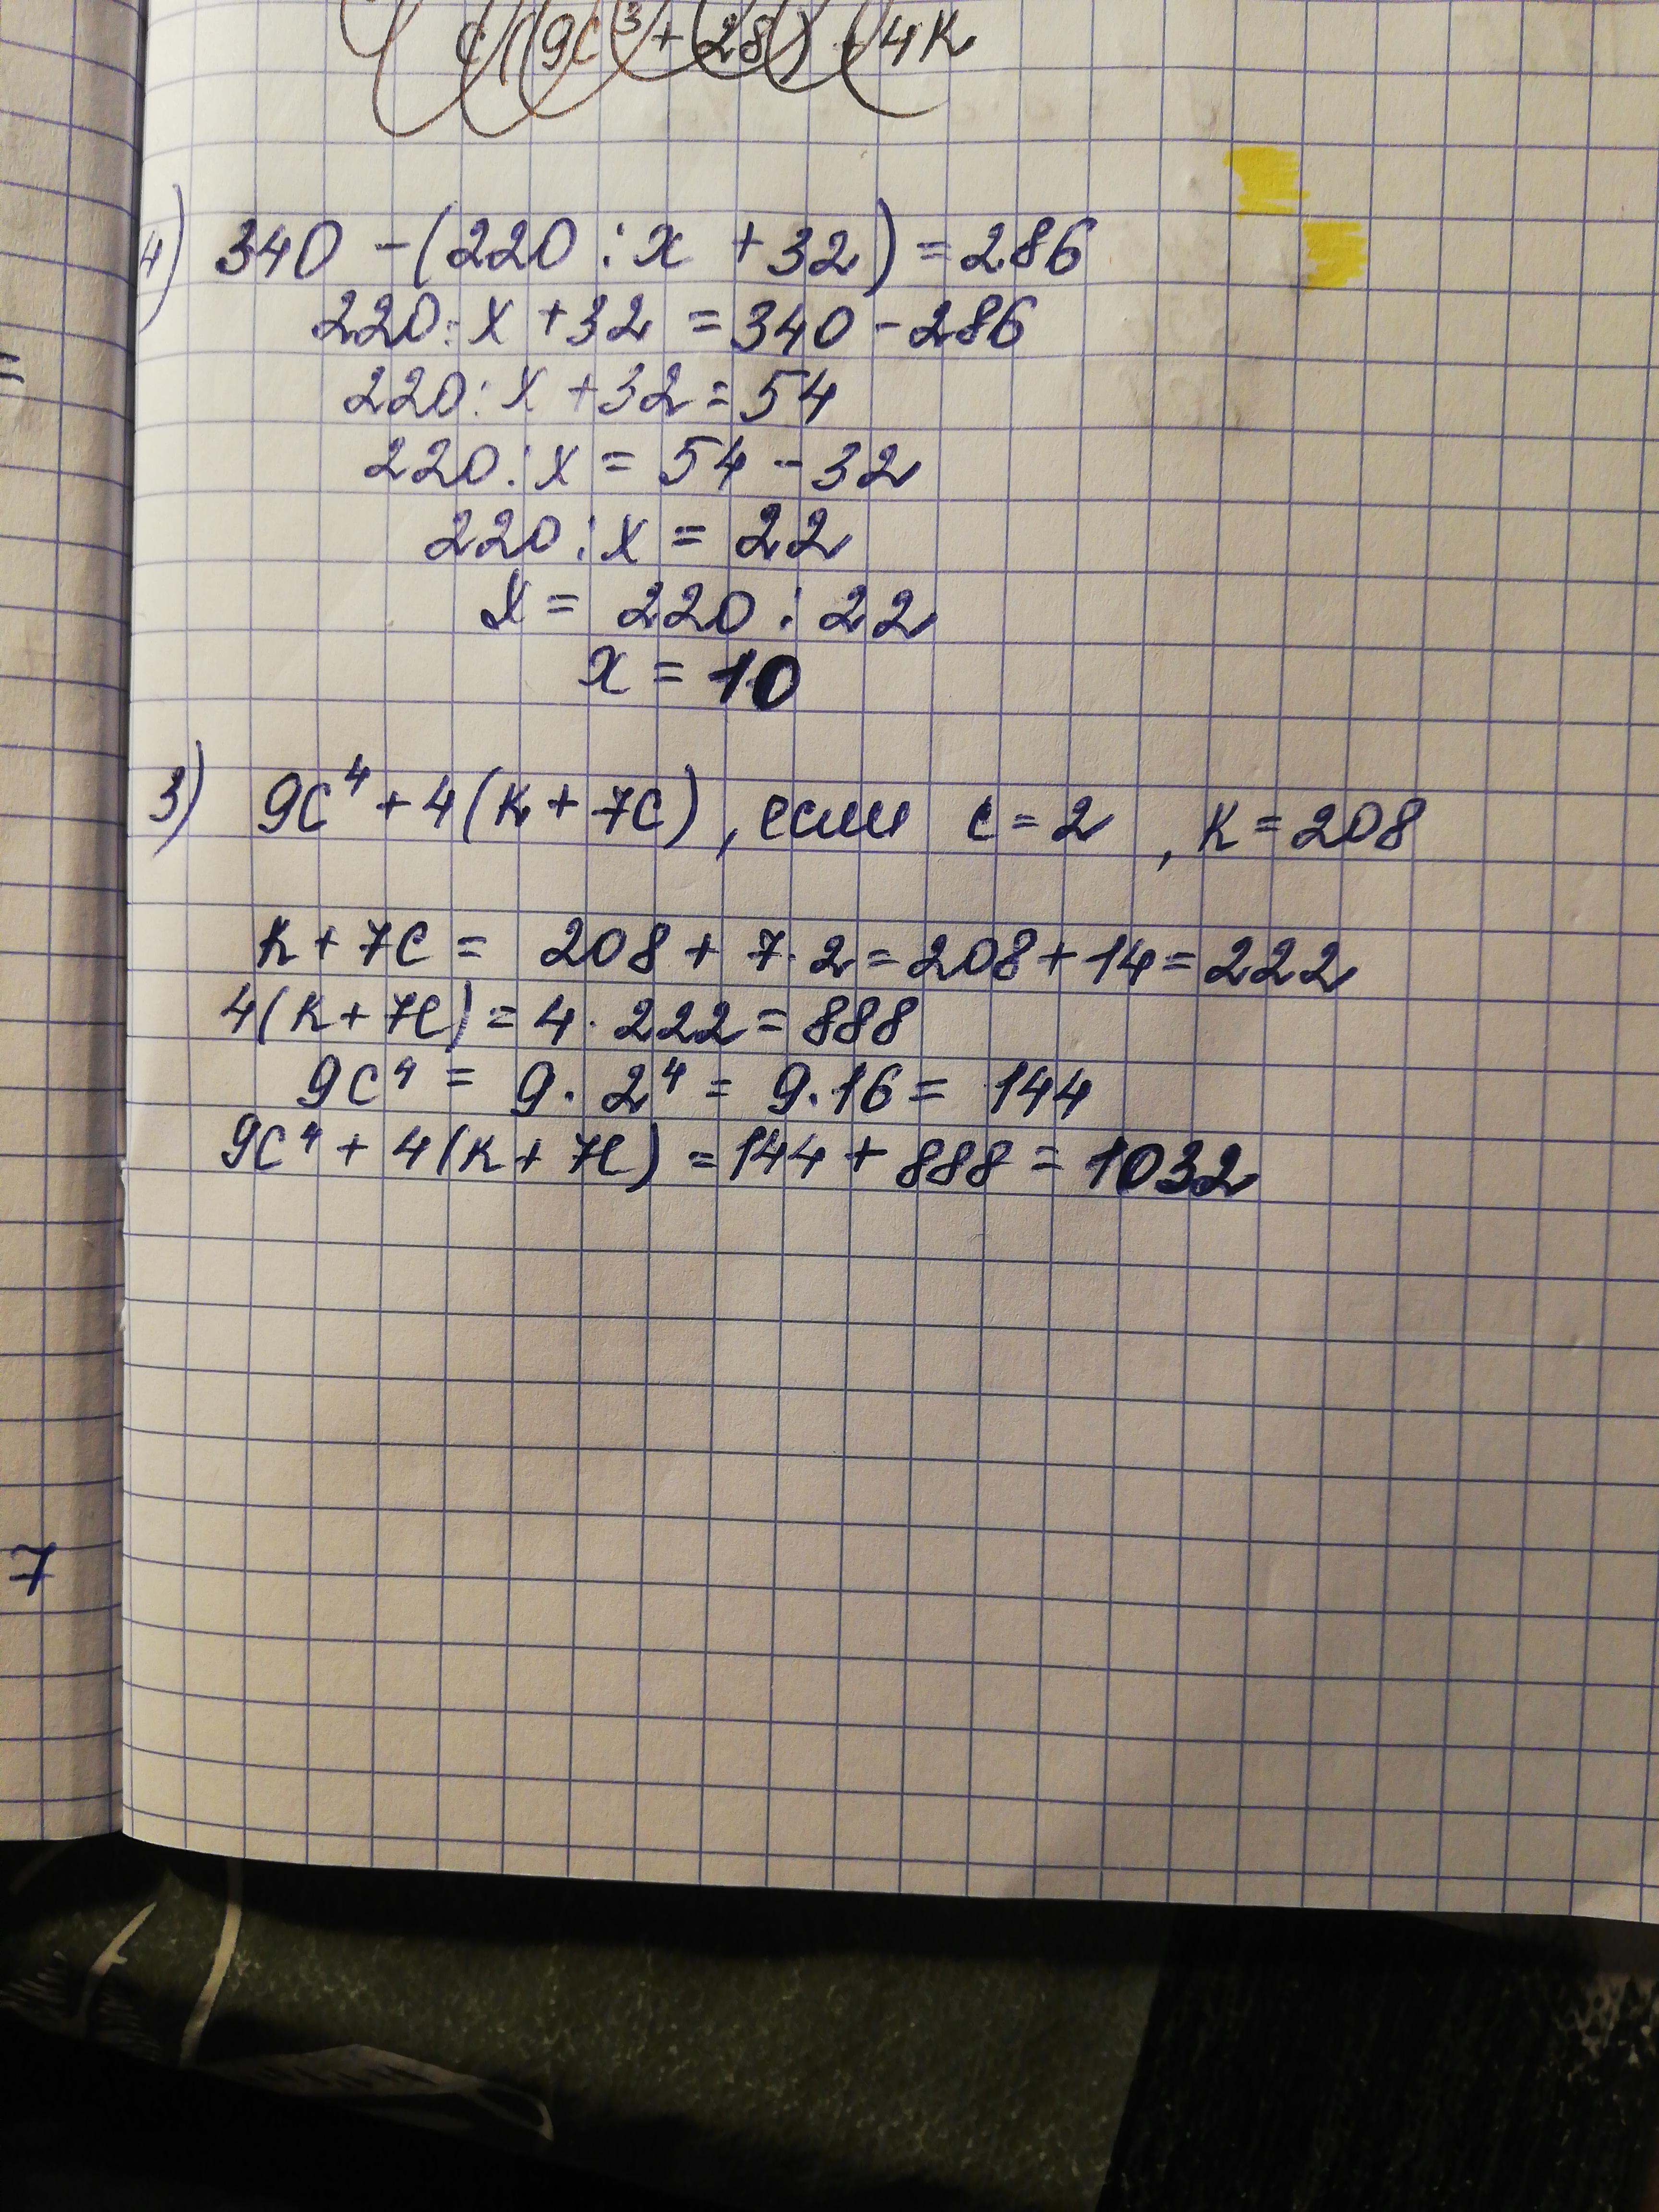 c(9c³ + 28) + 4к
4) 340 - (220 : x + 32) = 286
220 : x + 32 = 340 - 286
220 : x + 32 = 54
220 : x = 54 - 32
220 : x = 22
x = 220 : 22
x = 10
3) 9c⁴ + 4(к + 7c), если c = 2, к = 208
к + 7c = 208 + 7 · 2 = 208 + 14 = 222
4(к + 7c) = 4 · 222 = 888
9c⁴ = 9 · 2⁴ = 9 · 16 = 144
9c⁴ + 4(к + 7c) = 144 + 888 = 1032
=
7